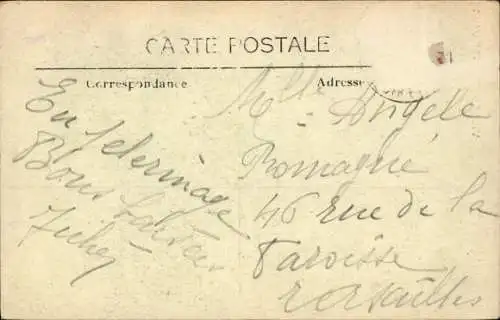 CARTE POSTALE
Correspondance
Adresse
En pelerinage
Bons baisers
Mlle Angèle
Romagné
46 rue de la
Paroisse
Versailles